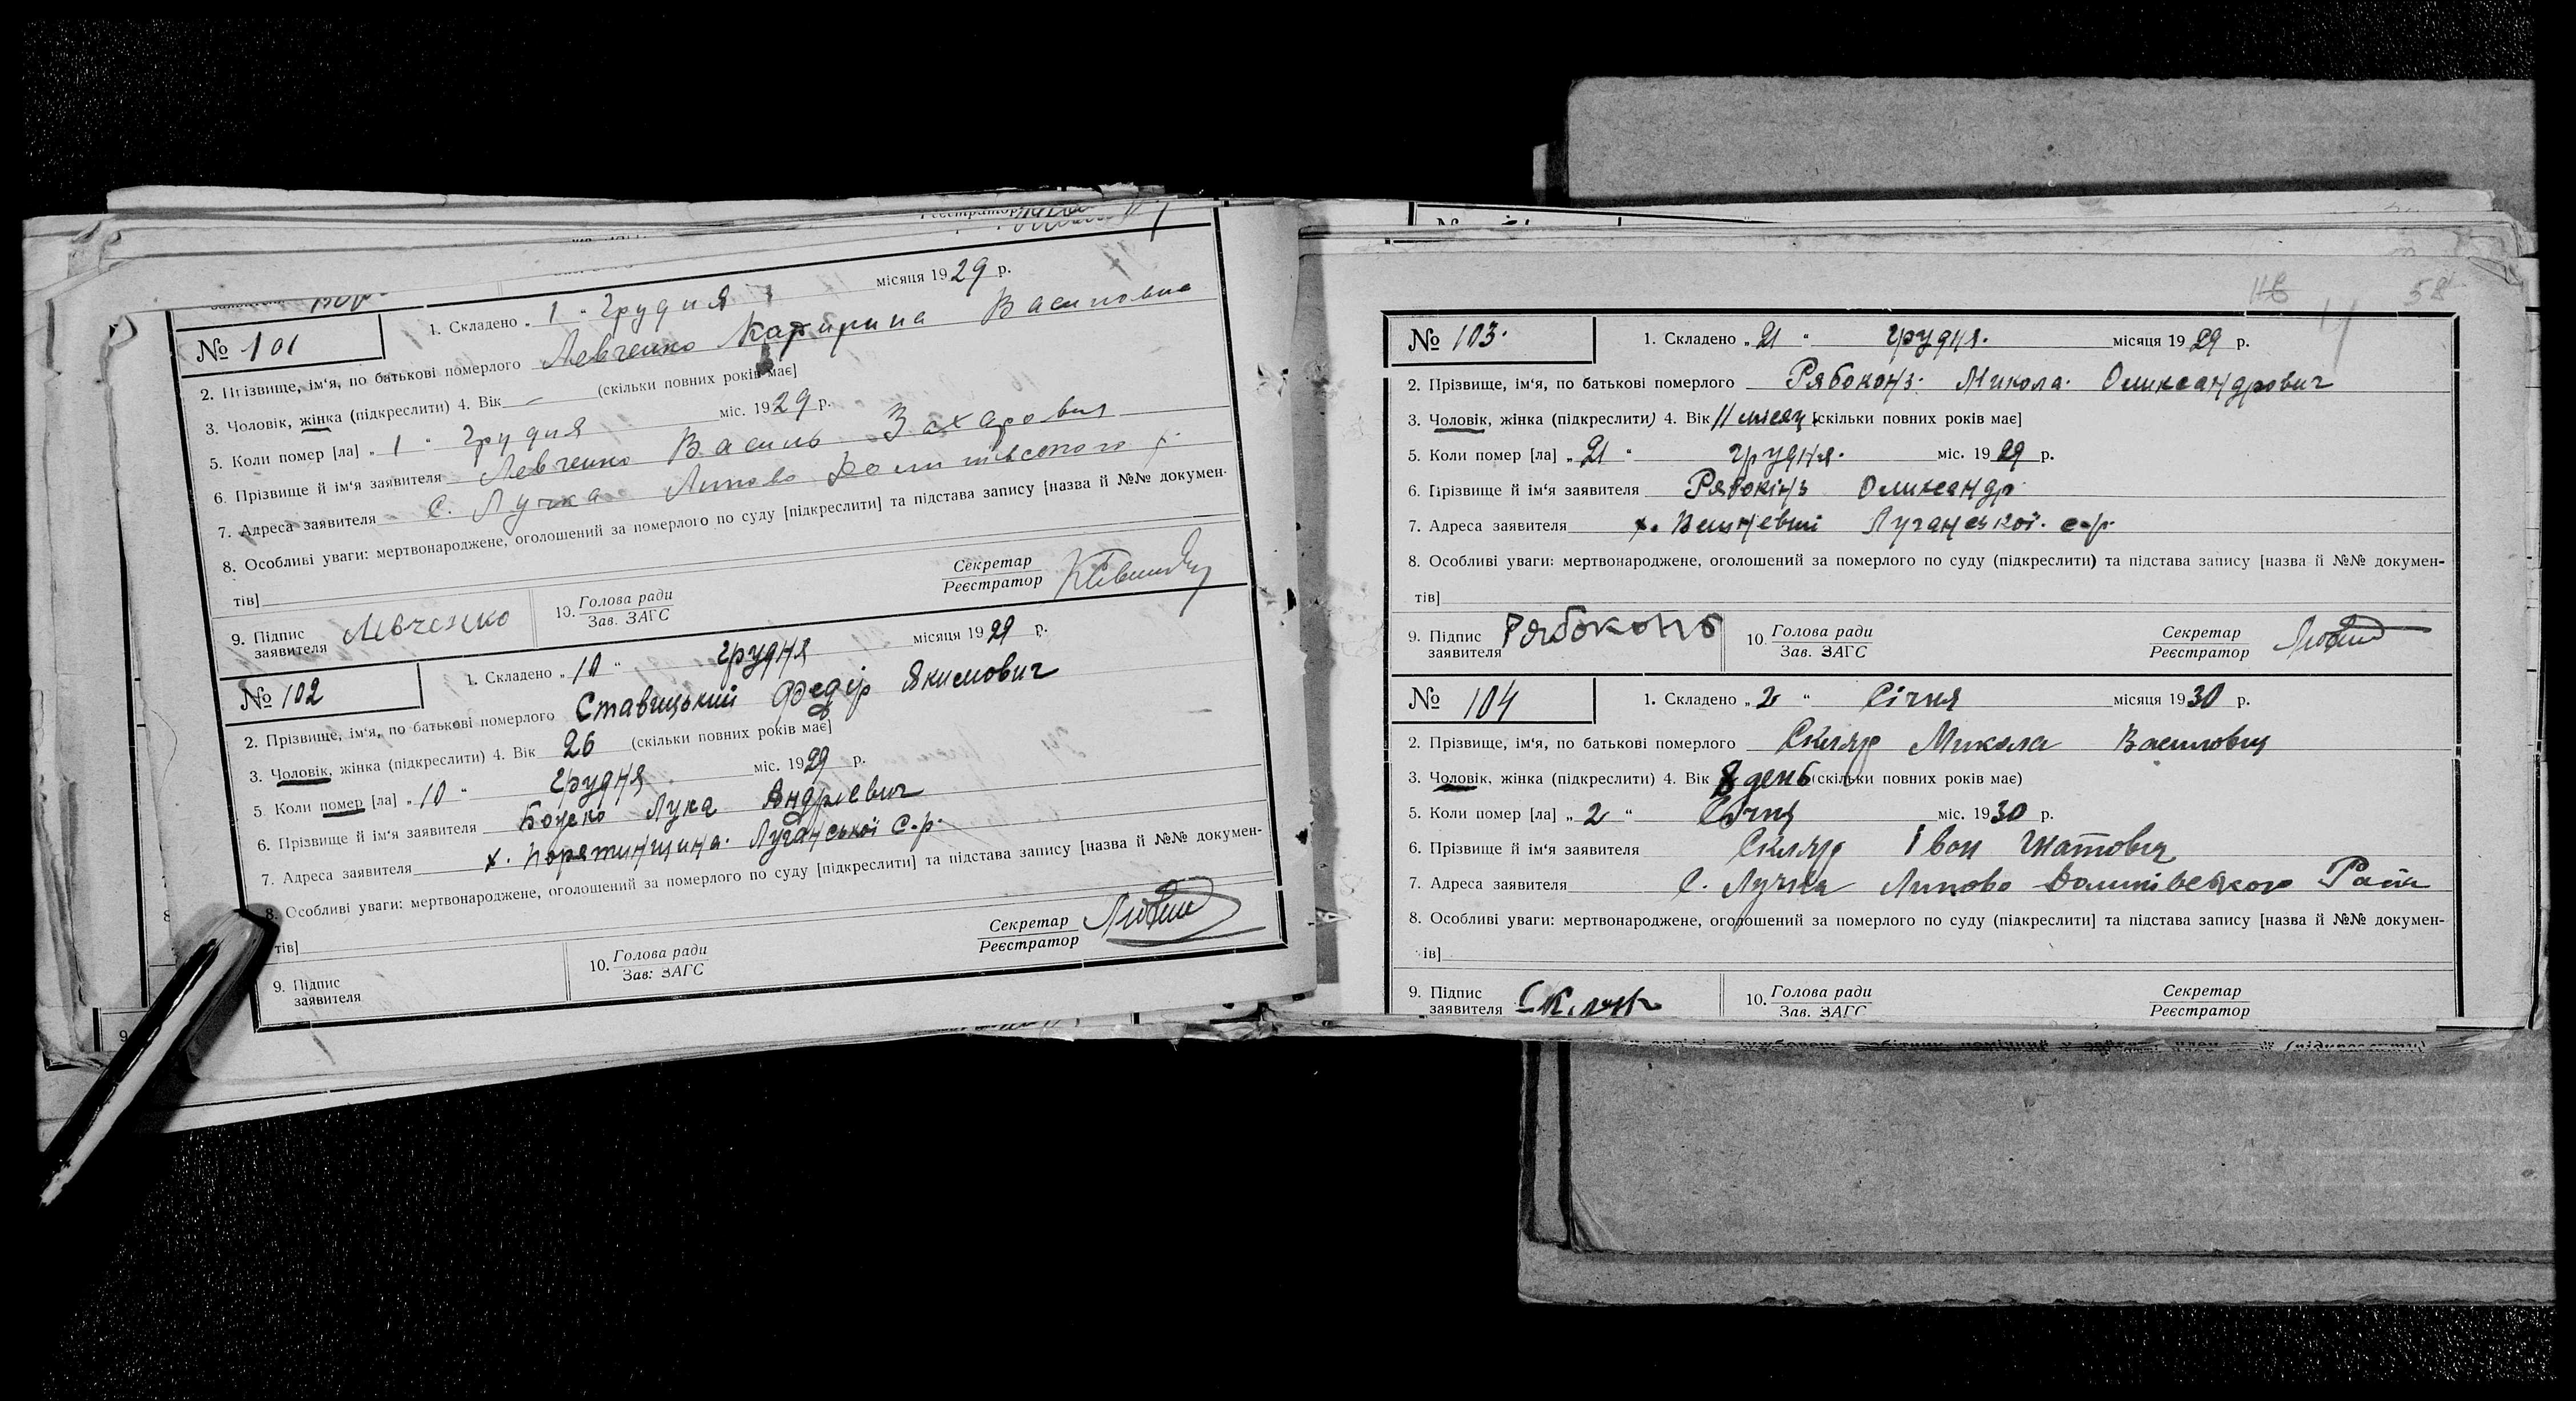 № 101
1. Складено „ 1 “ грудня місяця 1929 р.
2. Прізвище, ім‘я, по батькові померлого Левченко Катирина Василовна
3. Чоловік, жінка (підкреслити) 4. Вік — (скільки повних років має]
5. Коли помер [ла] „ 1 “ грудня міс. 1929 р.
6. Прізвище й ім‘я заявителя Левченко Василь Захарович
7. Адреса заявителя С. Лучка Липово
8. Особливі уваги: мертвонароджене, оголошений за померлого по суду [підкреслити] та підстава запису [назва й №№ докумен-
тів]
9. Підпис заявителя Левченко 10. Голова ради Зав. ЗАГС Секретар Реєстратор
№ 102
1. Складено „ 10 “ грудня місяця 1929 р.
2. Прізвище, ім‘я, по батькові померлого Ставицький Федір Якимович
3. Чоловік, жінка (підкреслити) 4. Вік 26 (скільки повних років має]
5. Коли помер [ла] „ 10 “ грудня міс. 1929 р.
6. Прізвище й ім‘я заявителя Лука Андрієвич
7. Адреса заявителя х. Луčанської с.р.
8. Особливі уваги: мертвонароджене, оголошений за померлого по суду [підкреслити] та підстава запису [назва й №№ докумен-
тів]
9. Підпис заявителя 10. Голова ради Зав: ЗАГС Секретар Реєстратор
58
№ 103.
1. Складено „ 21 “ грудня. місяця 1929 р.
2. Прізвище, ім‘я, по батькові померлого Рябоконь Микола Олександрович
3. Чоловік, жінка (підкреслити) 4. Вік 11 місяц [скільки повних років має]
5. Коли помер [ла] „ 21 “ грудня. міс. 1929 р.
6. Прізвище й ім‘я заявителя Рябокінь Олександр
7. Адреса заявителя х. с-р.
8. Особливі уваги: мертвонароджене, оголошений за померлого по суду (підкреслити) та підстава запису [назва й №№ докумен-
тів]
9. Підпис заявителя Рябоконь 10. Голова ради Зав. ЗАГС Секретар Реєстратор
№ 104
1. Складено „ 2 “ Січня місяця 1930 р.
2. Прізвище, ім‘я, по батькові померлого Скляр Микола Василович
3. Чоловік, жінка (підкреслити) 4. Вік 8 день (скільки повних років має)
5. Коли помер [ла] „ 2 “ Січня міс. 1930 р.
6. Прізвище й ім‘я заявителя Скляр Іван Гнатович
7. Адреса заявителя С. Лучка Липово Долинівського Рай
8. Особливі уваги: мертвонароджене, оголошений за померлого по суду (підкреслити] та підстава запису [назва й №№ докумен-
ів]
9. Підпис заявителя Скляр 10. Голова ради Зав. ЗАГС Секретар Реєстратор